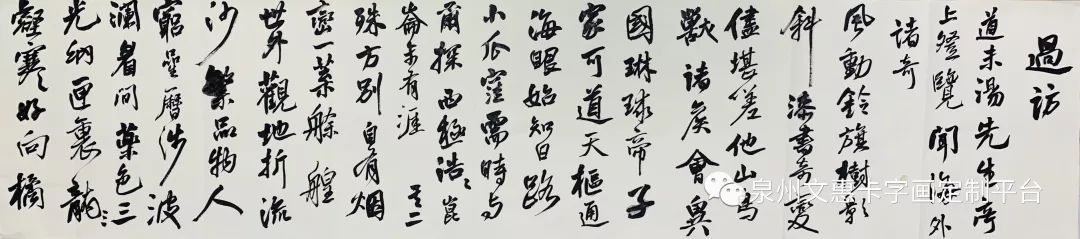 過訪
道未湯先生亭
上登覽聞海外
諸奇
風動鈴旗樹影
斜漆書奇變
儘堪嗟他山鳥
獸諸侯會異
國琳球帝子
家可道天樞通
海眼始知日路
小瓜窪需時与
爾探西極浩〻崑
崙未有涯 其二
殊方別自有烟
巒一葉艅艎
世外觀地折流
沙繁品物人
窮星曆涉波
瀾看間藥色三
光納匣裏龍
凝寒好向橘
泉州文惠卡字画定制平台